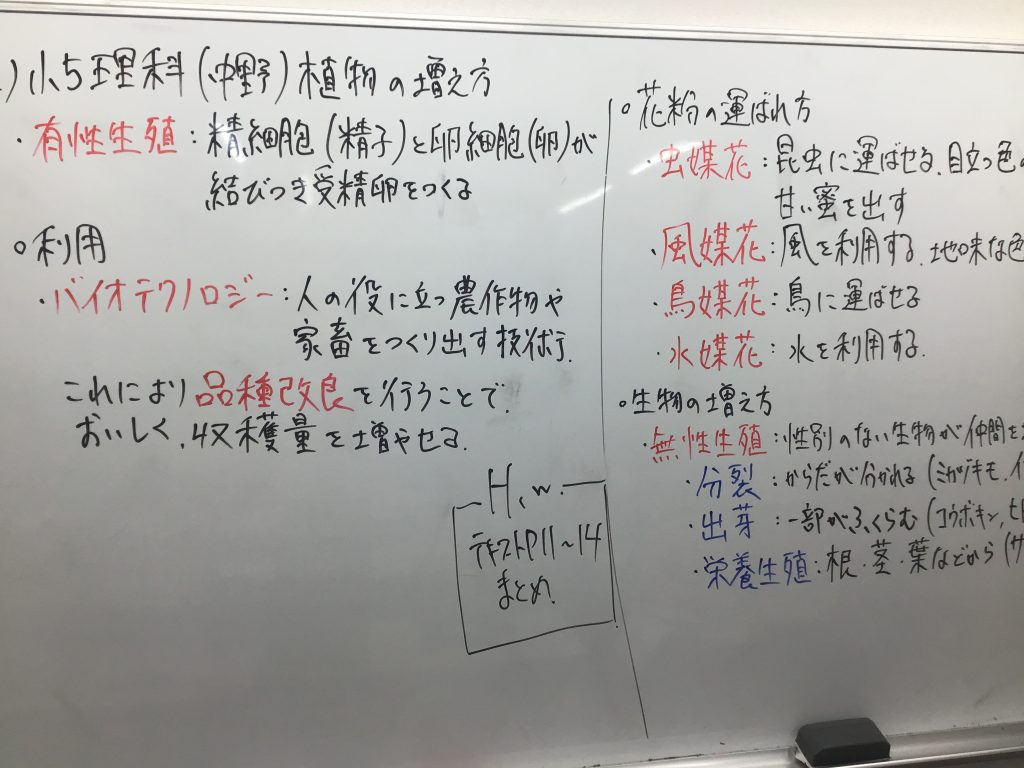 )小5理科(中野)植物の増え方
・有性生殖:精細胞(精子)と卵細胞(卵)が
結びつき受精卵をつくる
○利用
・バイオテクノロジー:人の役に立つ農作物や
家畜をつくり出す技術.
これにより品種改良を行うことで.
おいしく、収穫量を増やせる.
H.w.
テキストP11~14
まとめ.
○花粉の運ばれ方
・虫媒花:昆虫に運ばせる.目立つ色
甘い蜜を出す
・風媒花:風を利用する.地味な色
・鳥媒花:鳥に運ばせる
・水媒花:水を利用する.
○生物の増え方
・無性生殖:性別のない生物が仲間を
・分裂:からだが分かれる(ミカヅキモ.
・出芽:一部がふくらむ(コウボキン,ヒ
・栄養生殖:根・茎・葉などから(サ